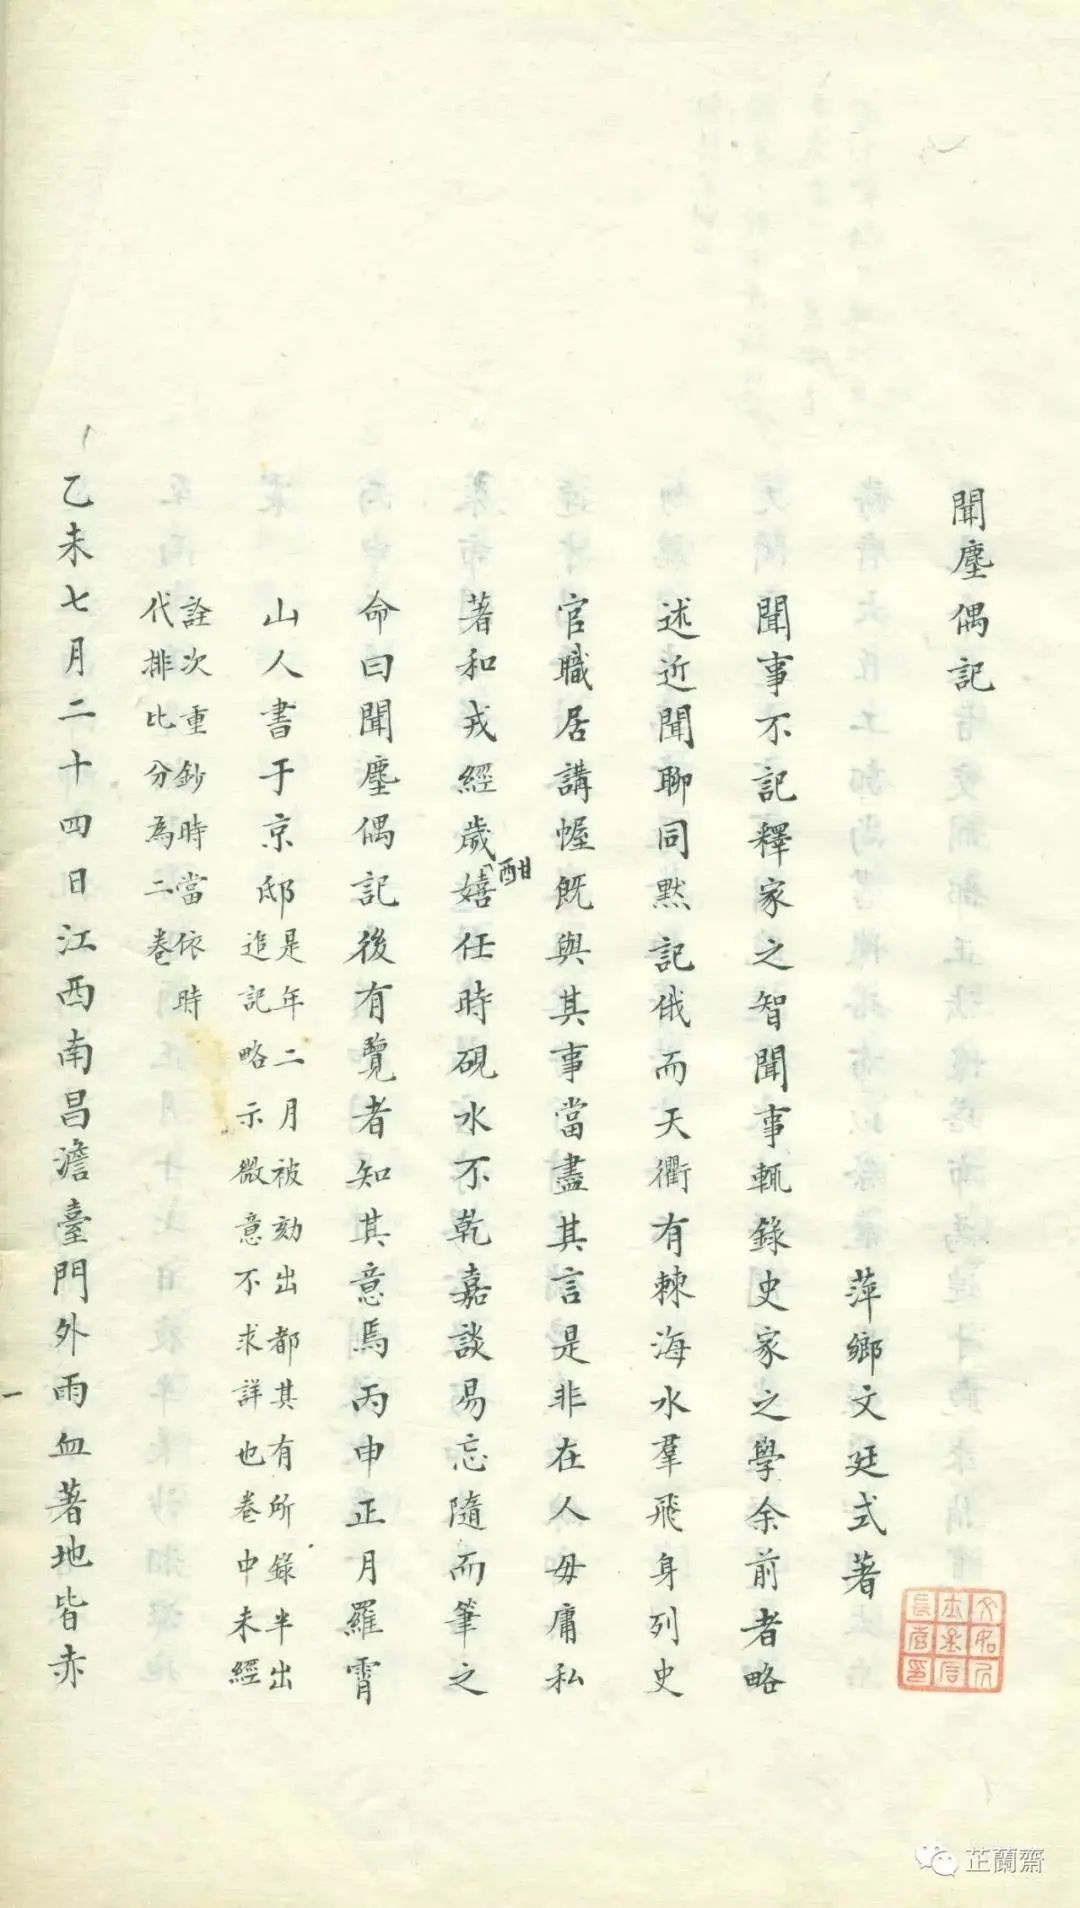 聞塵偶記
萍鄉文廷式著
聞事不記釋家之智聞事輒錄史家之學余前者略
述近聞聊同默記俄而天衢有棘海水羣飛身列史
官職居講幄既與其事當盡其言是非在人毋庸私
著和戎經歲嬉酣任時硯水不乾嘉談易忘隨而筆之
命曰聞塵偶記後有覽者知其意焉丙申正月羅霄
山人書于京邸是年二月被劾出都其有所錄半出
追記略示微意不求詳也卷中未經
詮次重鈔時當依時
代排比分為二卷
乙未七月二十四日江西南昌澹臺門外雨血著地皆赤
一
芷蘭齋